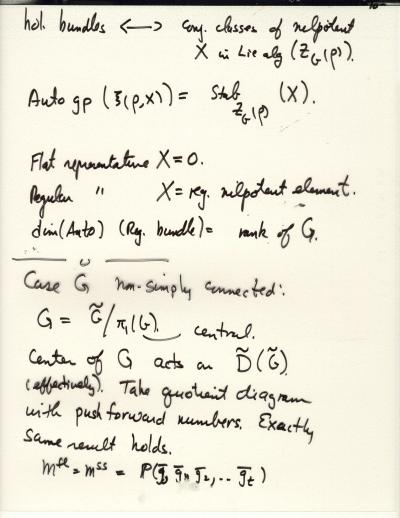 hol. bundles ⟷ conj. classes of nilpotent
X in Lie alg (Z_G(ρ)).
Auto gp (ξ(ρ,X)) = Stab_{Z_G(ρ)} (X).
Flat representative X = 0.
Regular " X = reg. nilpotent element.
dim(Auto) (Reg. bundle) = rank of G.
Case G non-simply connected:
G = G̃/π₁(G). central.
Center of G̃ acts on D̃(G̃)
(effectively). Take quotient diagram
with pushforward numbers. Exactly
same result holds.
m^{fl} = m^{ss} = P(ḡ, ḡ₁, ḡ₂, ... ḡ_t)